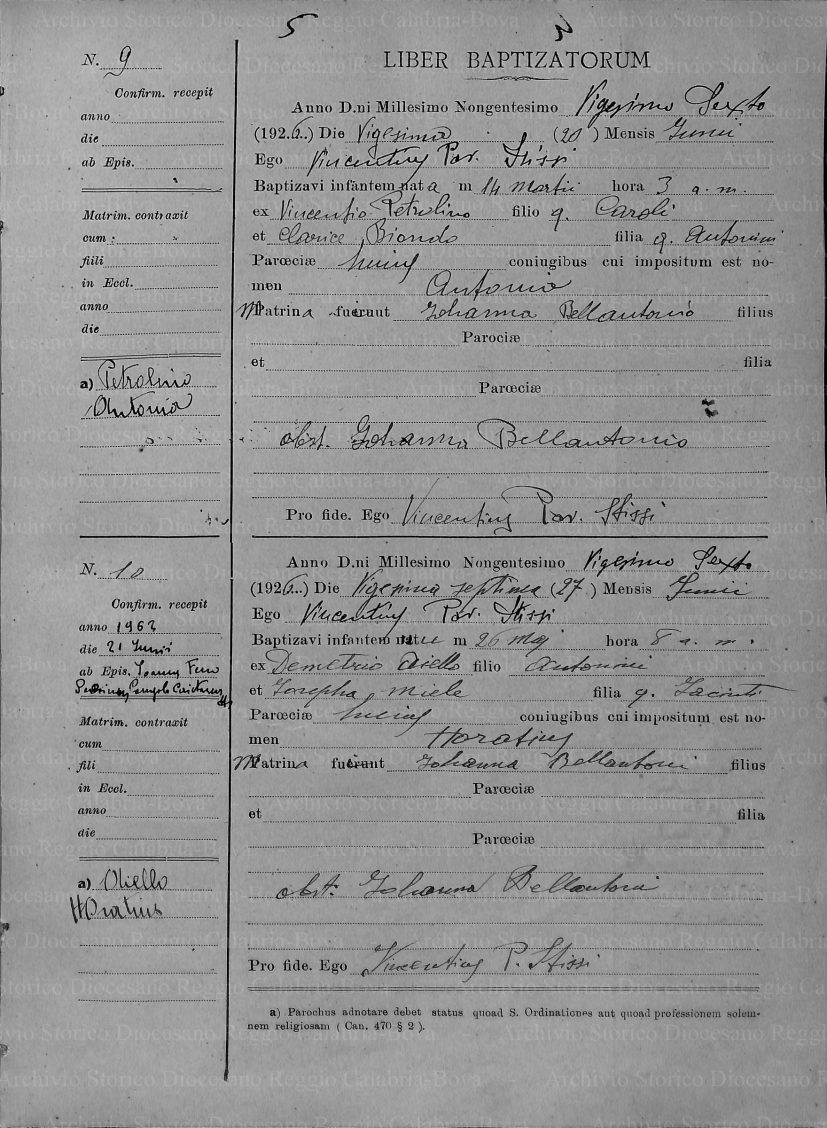 5
LIBER BAPTIZATORUM
N. 9
Confirm. recepit
anno
die
ab Epis.
Matrim. contraxit
cum
fiili
in Eccl.
anno
die
a) Petrolino
Antonia
Anno D.ni Millesimo Nongentesimo Vigesimo Sexto
(1926..) Die Vigesima (20) Mensis Junii
Ego Vincentius Par. Stissi
Baptizavi infantem nata m 14 Martii hora 3 a. m.
ex Vincentio Petrolino filio q. Caroli
et Clarice Biondo filia q. Antonini
Parœciæ hujus coniugibus cui impositum est no-
men Antonia
Matrina fuerunt Johanna Bellantonio filius
Parociæ
et filia
Parœciæ
obst. Johanna Bellantonio
Pro fide. Ego Vincentius Par. Stissi
N. 10
Confirm. recepit
anno 1962
die 21 Junii
ab Epis. Joanne Ferro
Matrim. contraxit
cum
fili
in Eccl.
anno
die
a) Oliello
Horatius
Anno D.ni Millesimo Nongentesimo Vigesimo Sexto
(1926..) Die Vigesima septima (27) Mensis Junii
Ego Vincentius Par. Stissi
Baptizavi infantem m 26 Maj hora 8 a. m.
ex Demetrio Aiello filio Antonini
et Josepha Miele filia q.
Parœciæ hujus coniugibus cui impositum est no-
men Horatius
Matrina fuerunt Johanna Bellantoni filius
Parœciæ
et filia
Parœciæ
obst. Johanna Bellantoni
Pro fide. Ego Vincentius P. Stissi
a) Parochus adnotare debet status quoad S. Ordinationes aut quoad professionem solem-
nem religiosam ( Can. 470 § 2 ).
Archivio Storico Diocesano Reggio Calabria-Bova